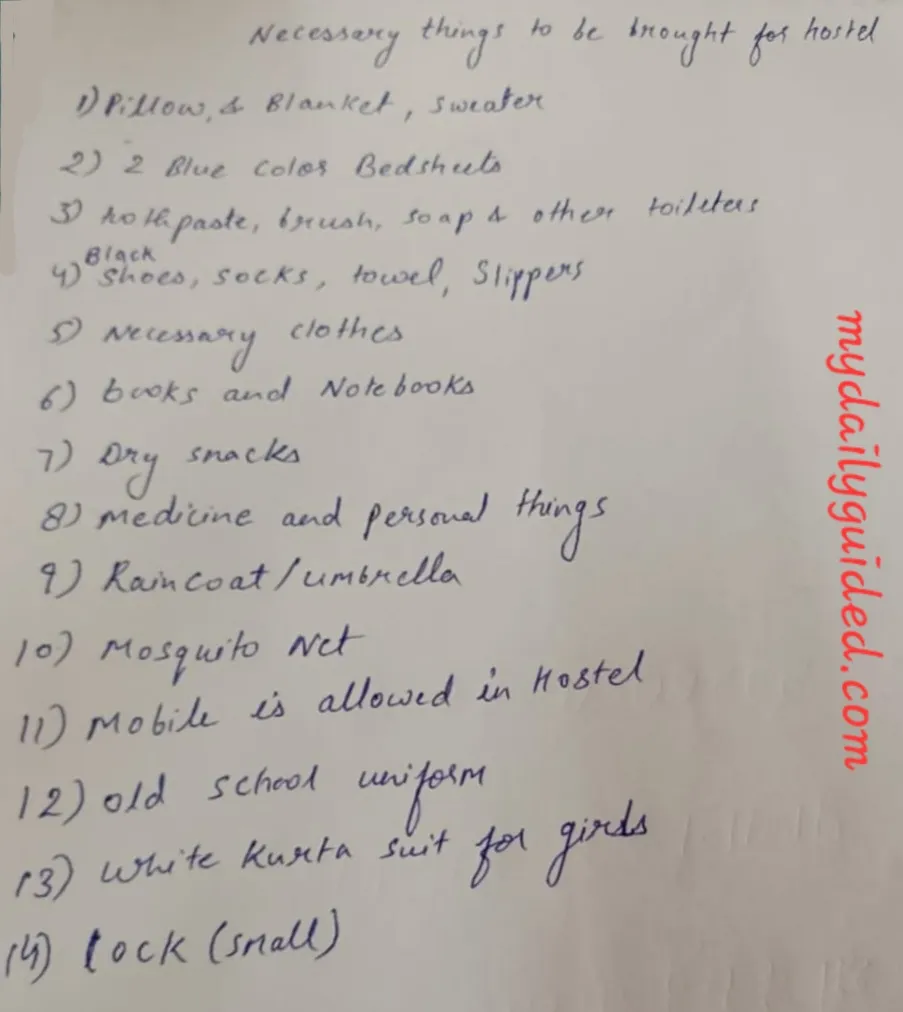 Necessary things to be brought for hostel
1) Pillow, & Blanket, sweater
2) 2 Blue Color Bedsheets
3) tothpaste, brush, soap & other toileters
Black
4) shoes, socks, towel, Slippers
5) Necessary clothes
6) books and Notebooks
7) Dry snacks
8) medicine and personal things
9) Raincoat/umbrella
10) Mosquito Net
11) Mobile is allowed in Hostel
12) old school uniform
13) white Kurta suit for girls
14) lock (small)
mydailyguided.com